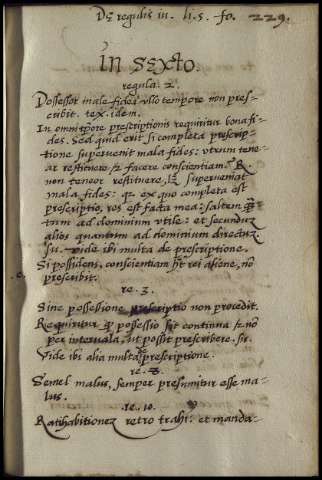 De regulis in. li. 5. fo. 229.
IN SEXTO.
regula. 2.
Possessor male fidei ullo tempore non pres-
cribit. tex. idem.
In omni tpore prescriptionis requiritur bona fi-
des. Sed quid erit si completa prescrip-
tione superuenit mala fides: utrum tene-
at restituere et facere conscientiam. R
non teneor restituere, licet superueniat
mala fides: q. ex quo completa est
prescriptio, res est facta mea: saltem
tum ad dominium utile: et secundum
alios quantum ad dominium directum
suū. vide ibi multa de prescriptione.
Si possidens, conscientiam rei aliene, no
prescribit.
re. 3.
Sine possessione prescriptio non procedit.
Requiritur q possessio sit continua et nō
per interuala, ut possit prescribere.
Vide ibi alia multa prescriptione.
re. 8.
Semel malus, semper presumitur esse ma-
lus.
re. 10.
Ratihabitionem retro trahi: et manda-